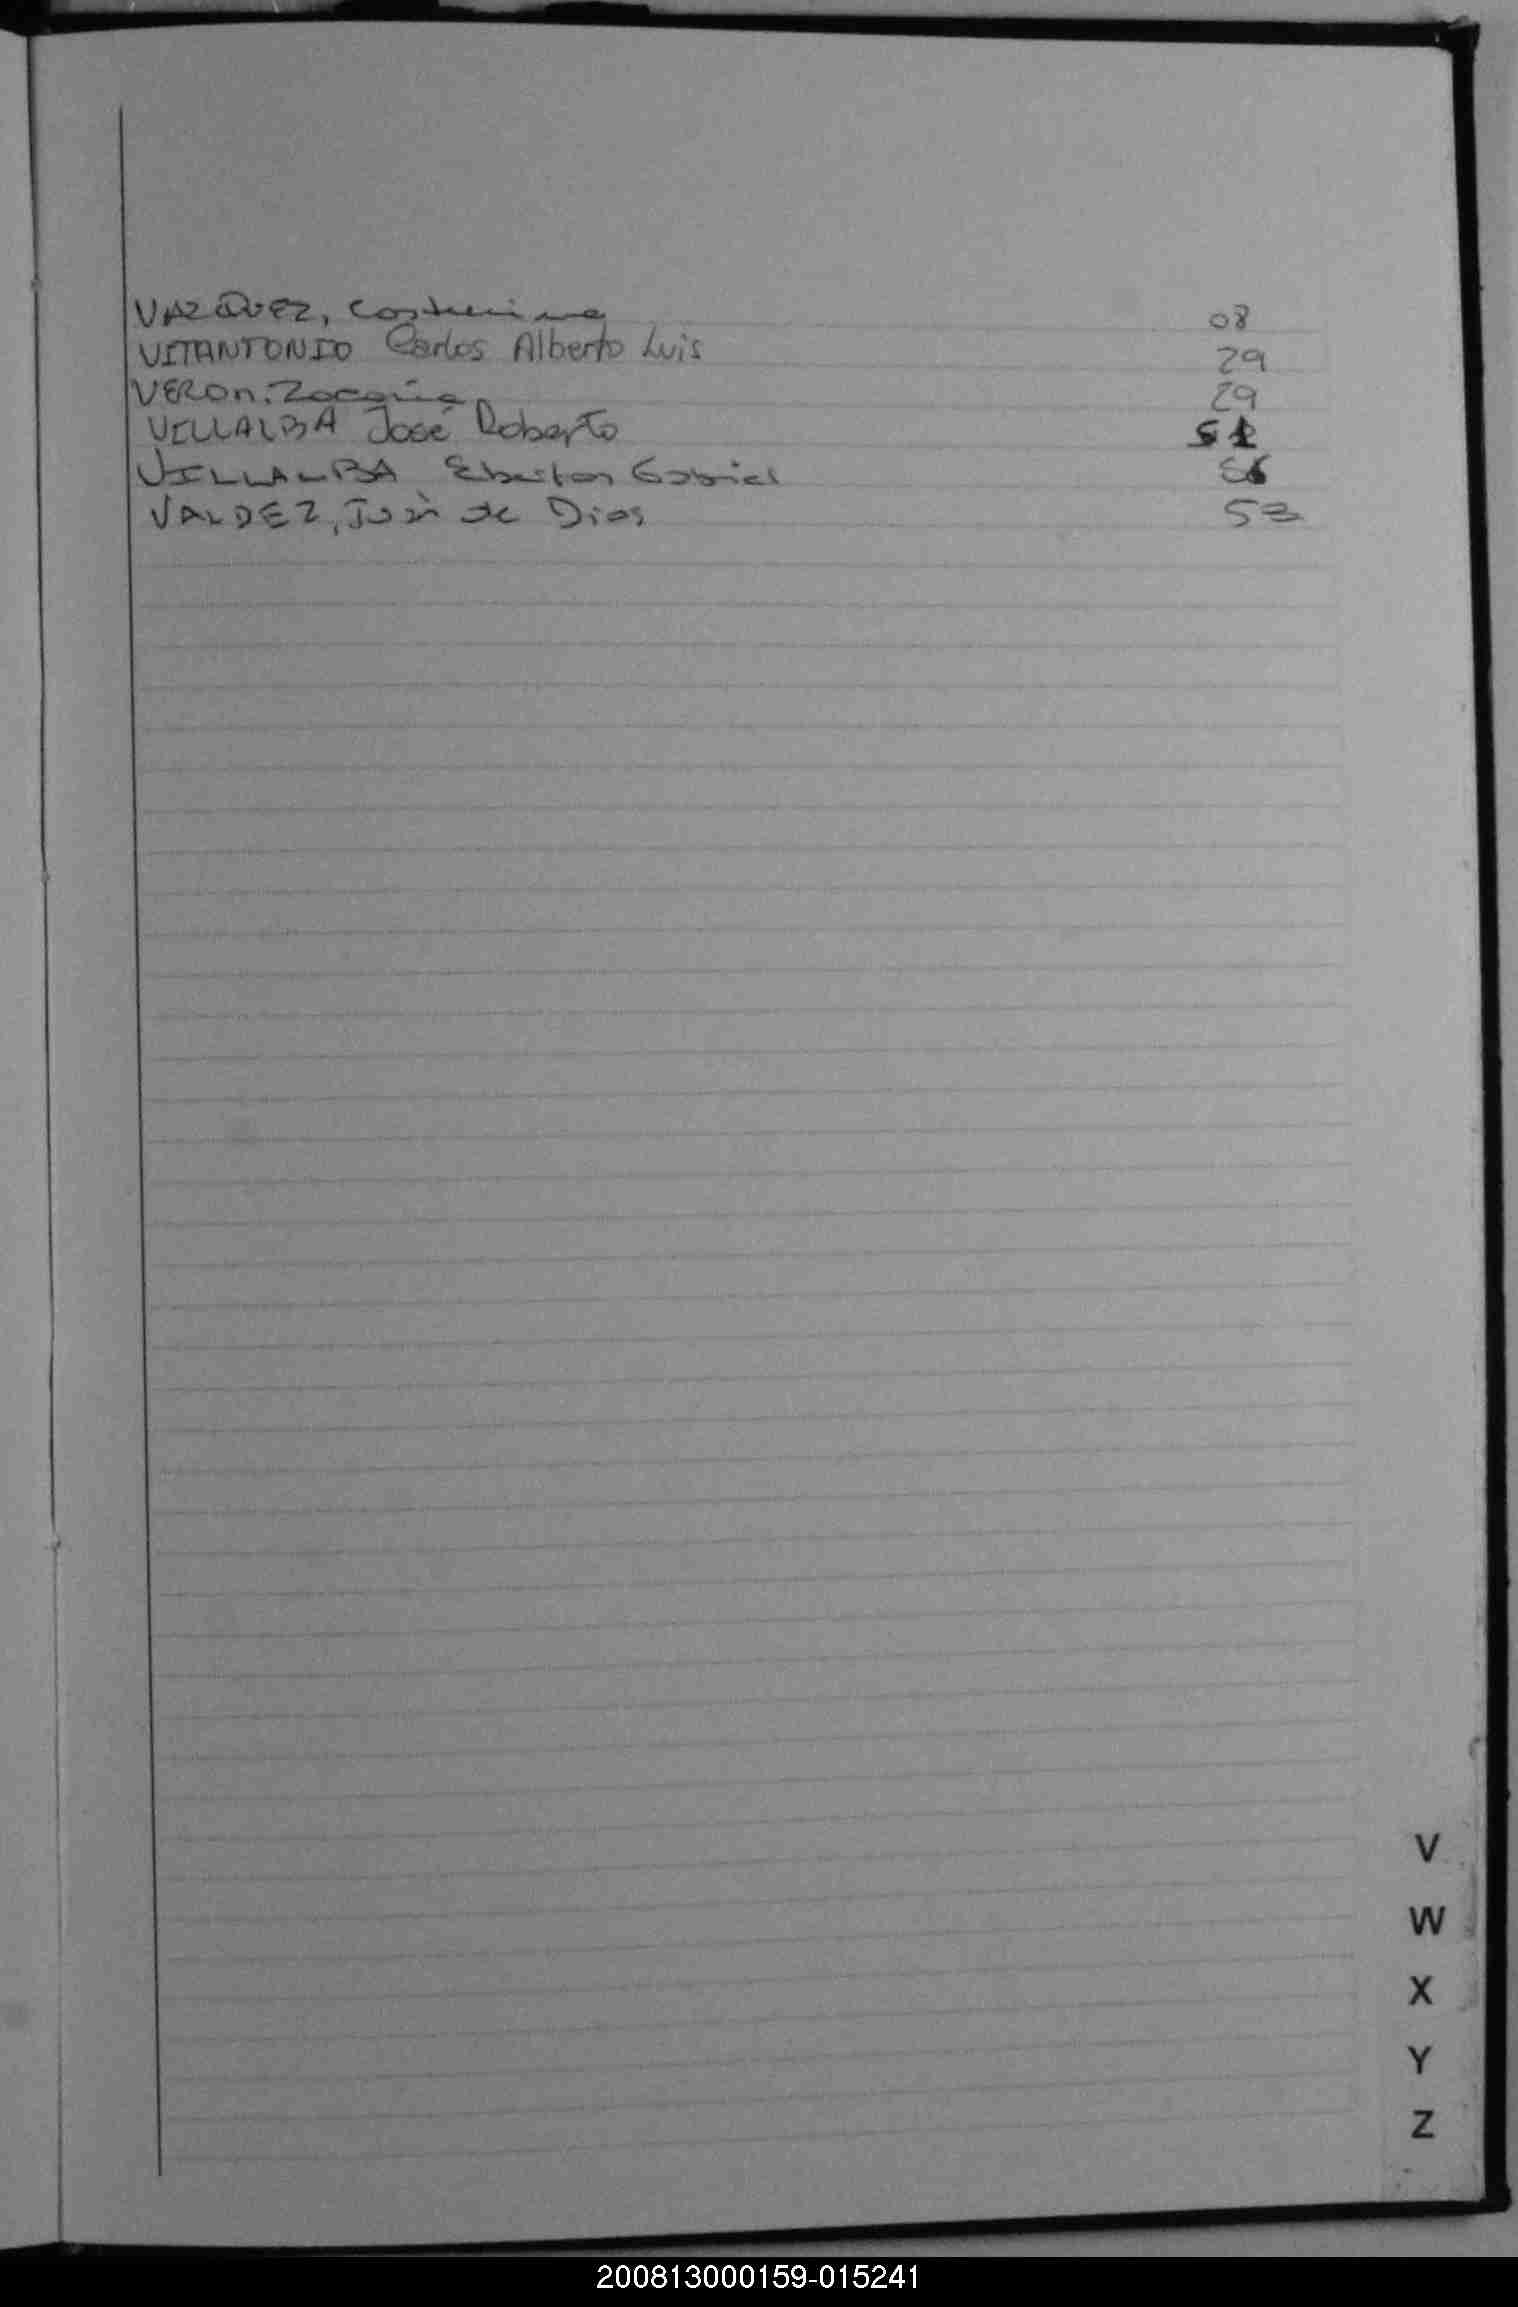 VAZQUEZ, 08
VITANTONIO Carlos Alberto Luis 29
VERON, 29
VILLALBA José Roberto 51
VILLALBA Gabriel 56
VALDEZ, Juan de Dios 53
V
W
X
Y
Z
200813000159-015241